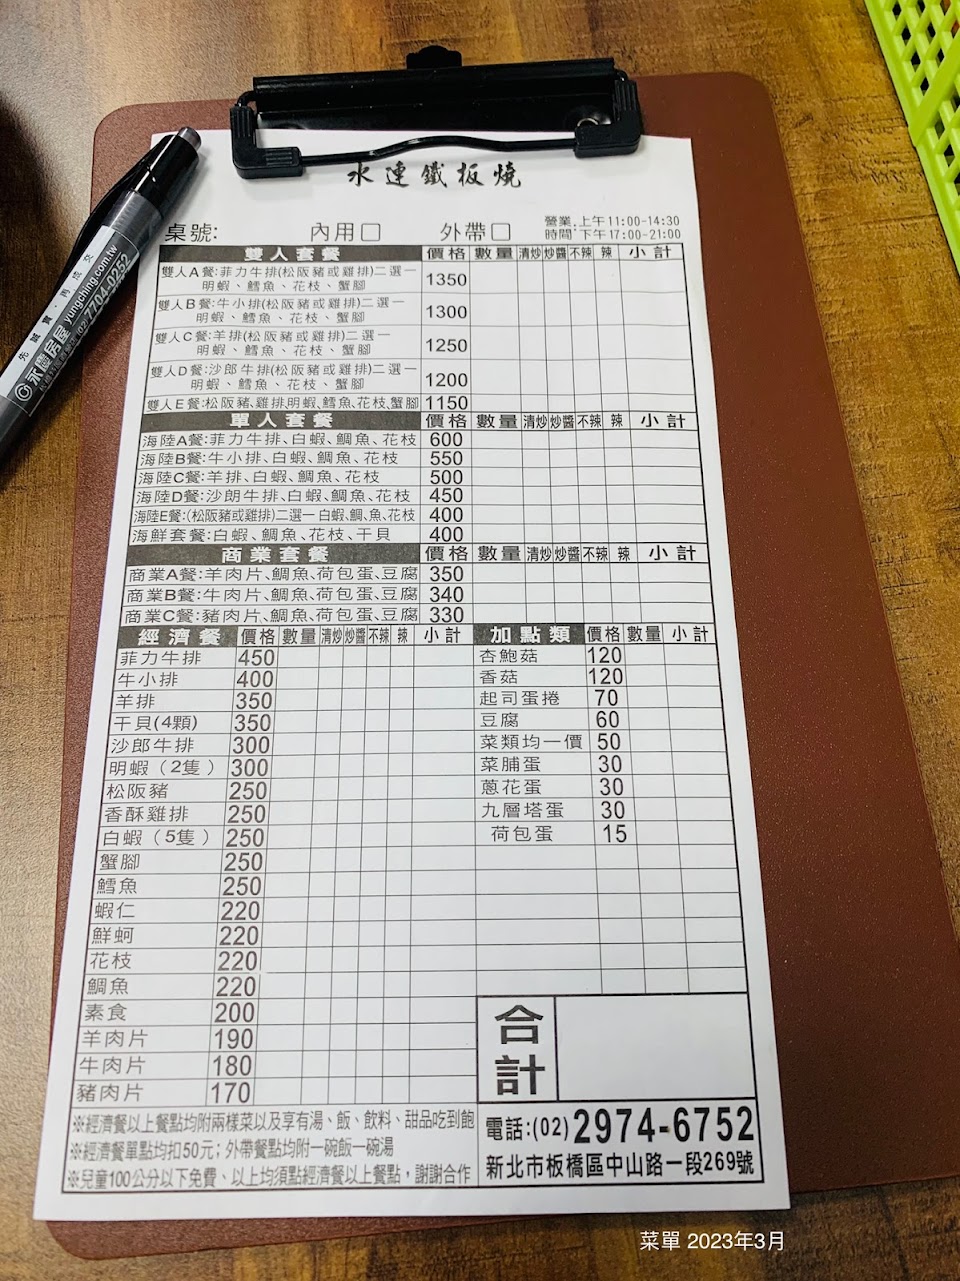 水連鐵板燒
桌號: 內用□ 外帶□ 營業 上午11:00-14:30
時間: 下午17:00-21:00
雙人套餐 價格 數量 清炒 炒醬 不辣 辣 小計
雙人A餐:菲力牛排(松阪豬或雞排)二選一
明蝦、鱈魚、花枝、蟹腳 1350
雙人B餐:牛小排(松阪豬或雞排)二選一
明蝦、鱈魚、花枝、蟹腳 1300
雙人C餐:羊排(松阪豬或雞排)二選一
明蝦、鱈魚、花枝、蟹腳 1250
雙人D餐:沙郎牛排(松阪豬或雞排)二選一
明蝦、鱈魚、花枝、蟹腳 1200
雙人E餐:松阪豬、雞排明蝦、鱈魚、花枝、蟹腳 1150
單人套餐 價格 數量 清炒 炒醬 不辣 辣 小計
海陸A餐:菲力牛排、白蝦、鯛魚、花枝 600
海陸B餐:牛小排、白蝦、鯛魚、花枝 550
海陸C餐:羊排、白蝦、鯛魚、花枝 500
海陸D餐:沙朗牛排、白蝦、鯛魚、花枝 450
海陸E餐:(松阪豬或雞排)二選一 白蝦、鯛、魚、花枝 400
海鮮套餐:白蝦、鯛魚、花枝、干貝 400
商業套餐 價格 數量 清炒 炒醬 不辣 辣 小計
商業A餐:羊肉片、鯛魚、荷包蛋、豆腐 350
商業B餐:牛肉片、鯛魚、荷包蛋、豆腐 340
商業C餐:豬肉片、鯛魚、荷包蛋、豆腐 330
經濟餐 價格 數量 清炒 炒醬 不辣 辣 小計
菲力牛排 450
牛小排 400
羊排 350
干貝(4顆) 350
沙郎牛排 300
明蝦（2隻） 300
松阪豬 250
香酥雞排 250
白蝦（5隻） 250
蟹腳 250
鱈魚 250
蝦仁 220
鮮蚵 220
花枝 220
鯛魚 220
素食 200
羊肉片 190
牛肉片 180
豬肉片 170
加點類 價格 數量 小計
杏鮑菇 120
香菇 120
起司蛋捲 70
豆腐 60
菜類均一價 50
菜脯蛋 30
蔥花蛋 30
九層塔蛋 30
荷包蛋 15
合計
※經濟餐以上餐點均附兩樣菜以及享有湯、飯、飲料、甜品吃到飽
※經濟餐單點均扣50元；外帶餐點均附一碗飯一碗湯
※兒童100公分以下免費、以上均須點經濟餐以上餐點，謝謝合作
電話:(02)2974-6752
新北市板橋區中山路一段269號
先誠實·再成交
永慶房屋 yungching.com.tw
(02)7704-0252
菜單 2023年3月